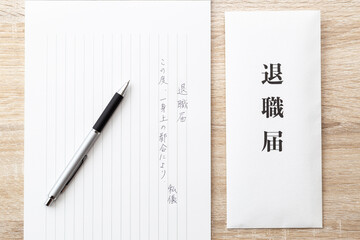 退職届
私儀
この度、一身上の都合により
退職届